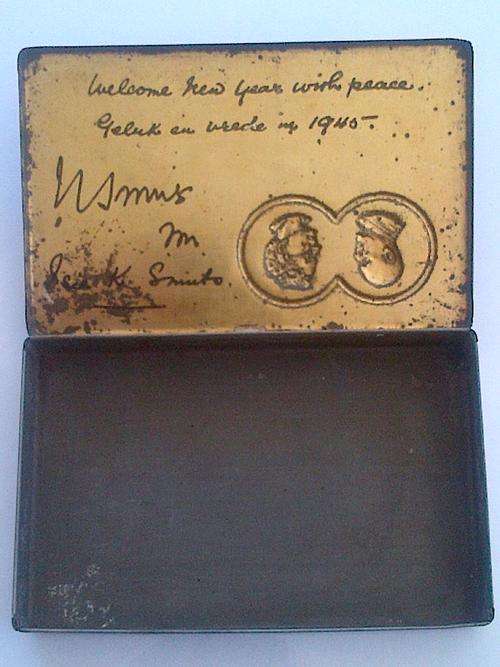 Welcome New Year with peace.
Geluk en vrede in 1945.
JC Smuts
en
Smuts.